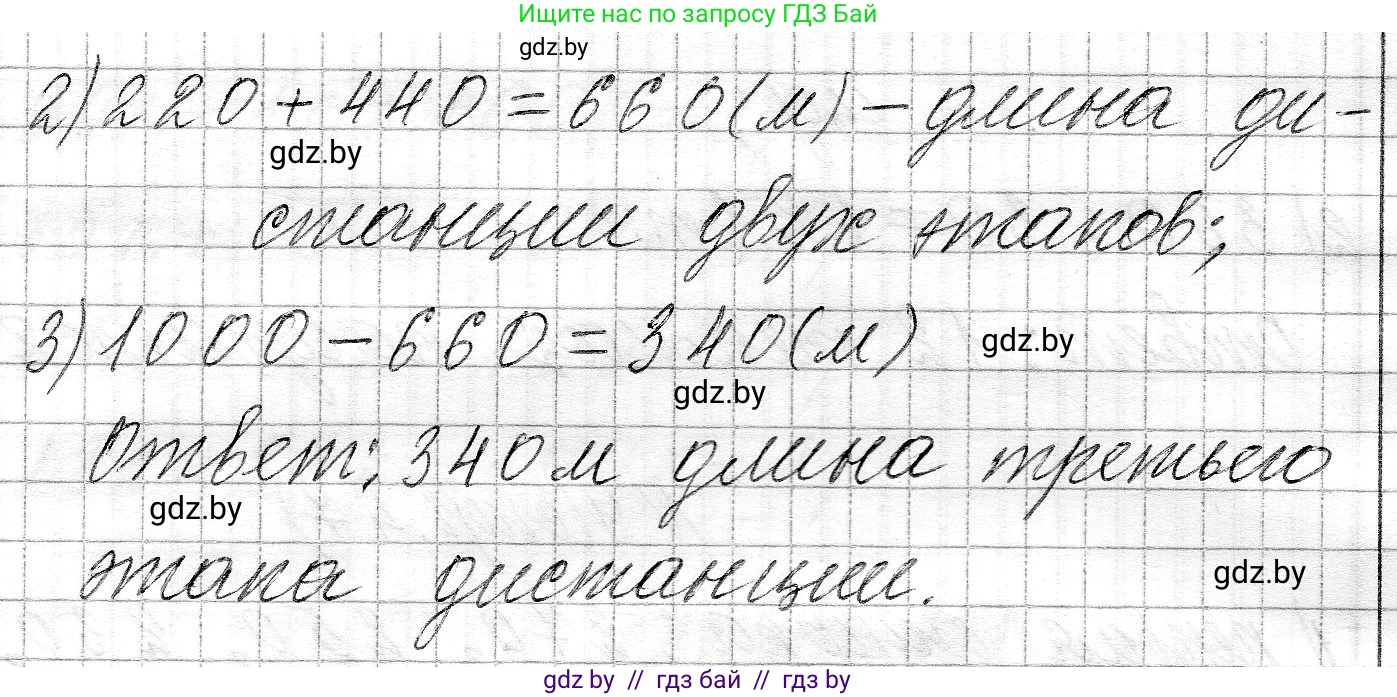 Ищите нас по запросу ГДЗ Бай
gdz.by
2) 220 + 440 = 660 (м) – длина ди-
gdz.by
станции двух этапов;
3) 1000 – 660 = 340 (м)
gdz.by
gdz.by
Ответ: 340 м длина третьего
gdz.by
этапа дистанции.
gdz.by
gdz by // гдз бай // гдз by